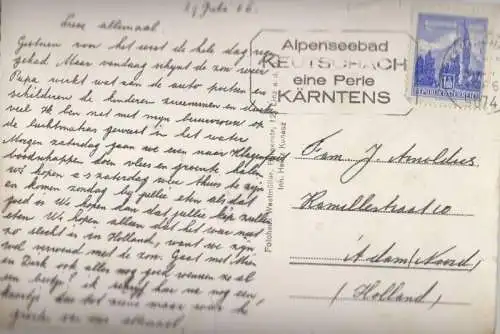 Lieve allemaal.
Gisteren van het west de hele dag regen
gehad. Maar vandaag schijnt de zon weer
Papa werkt wat aan de auto poetsen en
schilderen de kinderen zwemmen en duiken
veel Ik ben net met mijn buurvrouw op
de luchtmatras geweest in het water
Morgen zaterdag gaan we even naar Klagenfurt
boodschappen doen vlees en groente halen
We hopen a.s zaterdag weer thuis te zijn
en komen zondag bij jullie eten als dat
goed is We hopen dan dat jullie kip zullen
eten. We hopen alleen dat het weer niet
zo slecht is in Holland, want we zijn
wel verwend met de zon. Gaat met Thea
en Dirk ook alles nog goed wennen ze al
een beetje? ik schrijf haar nu nog een
kaartje dus tot ziens maar weer de
groeten van ons allemaal
Alpenseebad
KEUTSCHACH
eine Perle
KÄRNTENS
REPUBLIK ÖSTERREICH
9074
Fam J. Arnoldus
Kamillestraat 10
A'dam (Noord)
(Holland)